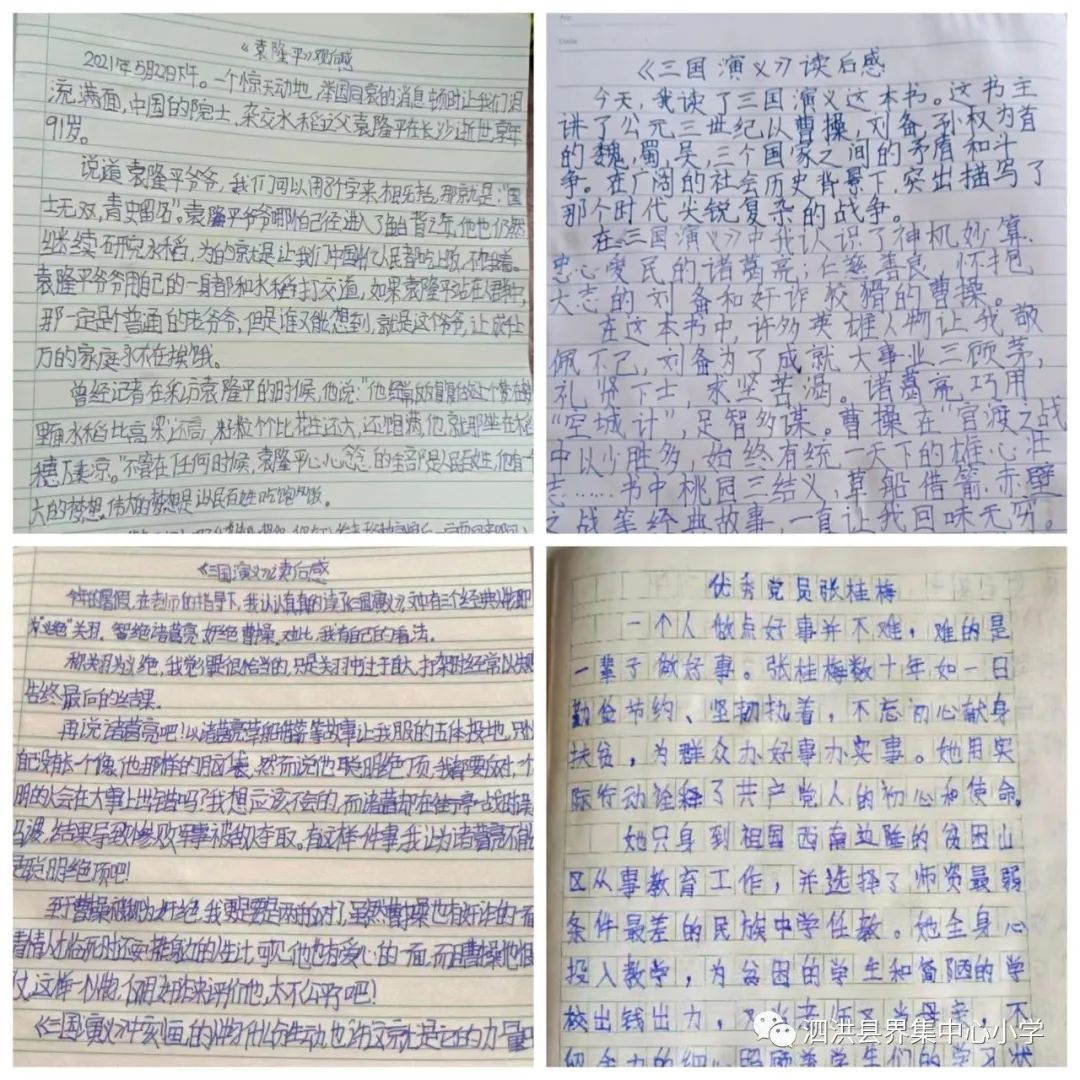 《袁隆平》观后感
2021年5月22日下午。一个惊天动地，举国同哀的消息顿时让我们泪
流满面，中国的院士，杂交水稻之父袁隆平在长沙逝世享年
91岁。
说道袁隆平爷爷，我们可以用8个字来相概括，那就是："国
士无双，青史留名"。袁隆平爷爷哪怕已经进入了鱼台背之年，他也仍然
继续研究水稻，为的就是让我们中国人民都吃上饭，不饿着。
袁隆平爷爷用自己的一身都和水稻打交道，如果袁隆平站在人群中，
那一定是个普通的老爷爷，但是谁又能想到，就是这个爷爷，让成千上
万的家庭永不在挨饿。
曾经记者在采访袁隆平的时候，他说："他经常
里面水稻比高梁还高，籽粒个个比花生还大，还饱满，他就那坐在
穗下乘凉。"不管在任何时候，袁隆平心心念念的全部是人民百姓，他有一
大的梦想。伟大的梦想是让人民百姓吃饱饭。
《三国演义》读后感
今天，我读了三国演义这本书。这书主
讲了公元三世纪以曹操，刘备，孙权为首
的魏，蜀，吴，三个国家之间的矛盾和斗
争。在广阔的社会历史背景下，突出描写了
那个时代尖锐复杂的战争。
在《三国演义》中我认识了神机妙算，
忠心爱民的诸葛亮；仁慈善良，怀抱
大志的刘备和奸诈狡猾的曹操。
在这本书中，许多英雄人物让我敬
佩不已，刘备为了成就大事业三顾茅，
礼贤下士，求坚苦渴。诸葛亮巧用
"空城计"，足智多谋。曹操在"官渡之战
中以少胜多，始终有统一天下的雄心壮
志……书中桃园三结义，草船借箭，赤壁
之战等经典故事，一直让我回味无穷。
《三国演义》读后感
今年的暑假，在老师的指导下，我认认真真的读了《三国演义》，文中有三个经典人物即
"义绝"关羽。智绝诸葛亮，奸绝曹操。对此，我有自己的看法。
称关羽为义绝，我觉得是很恰当的，只是关羽中过于自大，打架时经常以失败
告终最后的结果。
再说诸葛亮吧！以诸葛亮草船借箭等故事让我服的五体投地，只恨
自己没有长一个像他那样的脑袋。然而说他聪明绝顶，我都要反对，个
明的人会在大事上出错吗？我想应该不会的，而诸葛却在街亭一战时误
马谡，结果导致惨败，军事被敌夺取。有这样一件事，我认为诸葛亮不能
是聪明绝顶吧！
至于曹操被称为奸绝，我更是要是两的对了，虽然曹操也有奸诈的一面
着情人才，临死时还安排身边的生计，可见他也有爱心的一面，而且曹操他
仗，这样一个人物，仅用奸诈来评价他，太不公平了吧！
《三国演义》中刻画的人物什么么生动，也许这就是它的力量吧
优秀党员张桂梅
一个人做点好事并不难，难的是
一辈子做好事。张桂梅数十年如一日
勤俭节约、坚韧执着，不忘初心献身
扶贫，为群众办好事办实事。她用实
际行动诠释了共产党人的初心和使命。
她只身到祖国西南边陲的贫困山
区从事教育工作，并选择了师资最弱
条件最差的民族中学任教。她全身心
投入教学，为贫困的学生和简陋的学
校出钱出力，又当老师又当母亲，不
留余力的细心照顾着学生们的学习状
泗洪县界集中心小学